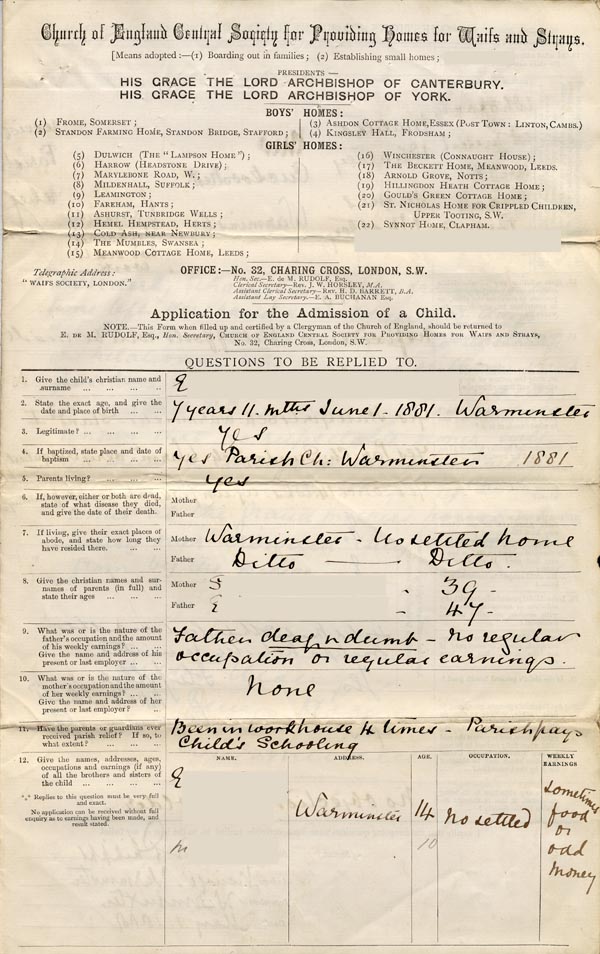 Church of England Central Society for Providing Homes for Waifs and Strays.
[Means adopted :—(1) Boarding out in families; (2) Establishing small homes;
PRESIDENTS—
HIS GRACE THE LORD ARCHBISHOP OF CANTERBURY.
HIS GRACE THE LORD ARCHBISHOP OF YORK.
BOYS' HOMES:
(1) FROME, SOMERSET;
(2) STANDON FARMING HOME, STANDON BRIDGE, STAFFORD;
(3) ASHDON COTTAGE HOME, ESSEX (POST TOWN: LINTON, CAMBS.)
(4) KINGSLEY HALL, FRODSHAM;
GIRLS' HOMES:
(5) DULWICH (THE "LAMPSON HOME");
(6) HARROW (HEADSTONE DRIVE);
(7) MARYLEBONE ROAD, W.;
(8) MILDENHALL, SUFFOLK;
(9) LEAMINGTON;
(10) FAREHAM, HANTS;
(11) ASHURST, TUNBRIDGE WELLS;
(12) HEMEL HEMPSTEAD, HERTS;
(13) COLD ASH, NEAR NEWBURY;
(14) THE MUMBLES, SWANSEA;
(15) MEANWOOD COTTAGE HOME, LEEDS;
(16) WINCHESTER (CONNAUGHT HOUSE);
(17) THE BECKETT HOME, MEANWOOD, LEEDS.
(18) ARNOLD GROVE, NOTTS;
(19) HILLINGDON HEATH COTTAGE HOME;
(20) GOULD'S GREEN COTTAGE HOME;
(21) ST. NICHOLAS HOME FOR CRIPPLED CHILDREN,
UPPER TOOTING, S.W.
(22) SYNNOT HOME, CLAPHAM.
Telegraphic Address:
"WAIFS SOCIETY, LONDON."
OFFICE:—No. 32, CHARING CROSS, LONDON, S.W.
Hon. Sec.—E. DE M. RUDOLF, Esq.
Clerical Secretary—REV. J. W. HORSLEY, M.A.
Assistant Clerical Secretary—REV. H. D. BARRETT, B.A.
Assistant Lay Secretary—E. A. BUCHANAN Esq.
Application for the Admission of a Child.
NOTE.—This Form when filled up and certified by a Clergyman of the Church of England, should be returned to
E. DE M. RUDOLF, Esq., Hon. Secretary, CHURCH OF ENGLAND CENTRAL SOCIETY FOR PROVIDING HOMES FOR WAIFS AND STRAYS,
No. 32, Charing Cross, London, S.W.
QUESTIONS TO BE REPLIED TO.
1. Give the child's christian name and
surname ... ... ... ...
E
2. State the exact age, and give the
date and place of birth ... ...
7 years 11 mths June 1 - 1881. Warminster
3. Legitimate? ... ... ... ...
Yes
4. If baptized, state place and date of
baptism ... ... ... ...
Yes Parish Ch: Warminster 1881
5. Parents living? ... ... ...
Yes
6. If, however, either or both are dead,
state of what disease they died,
and give the date of their death.
Mother
Father
7. If living, give their exact places of
abode, and state how long they
have resided there. ... ...
Mother Warminster - No settled home
Father Ditto — Ditto.
8. Give the christian names and sur-
names of parents (in full) and
state their ages ... ... ...
Mother - 39 -
Father E - 47 -
9. What was or is the nature of the
father's occupation and the amount
of his weekly earnings? ... ...
Give the name and address of his
present or last employer ... ...
Father deaf n dumb - no regular
occupation or regular earnings.
10. What was or is the nature of the
mother's occupation and the amount
of her weekly earnings? ... ...
Give the name and address of her
present or last employer? ... ...
None
11. Have the parents or guardians ever
received parish relief? If so, to
what extent? ... ... ...
Been in workhouse 4 times - Parish pays
Child's Schooling
12. Give the names, addresses, ages,
occupations and earnings (if any)
of all the brothers and sisters of
the child ... ... ... ...
Replies to this question must be very full
and exact.
No application can be received without full
enquiry as to earnings having been made, and
result stated.
NAME. ADDRESS. AGE. OCCUPATION. WEEKLY EARNINGS
E
Warminster 14 No settled
Sometimes
food
or
odd
money
M 10